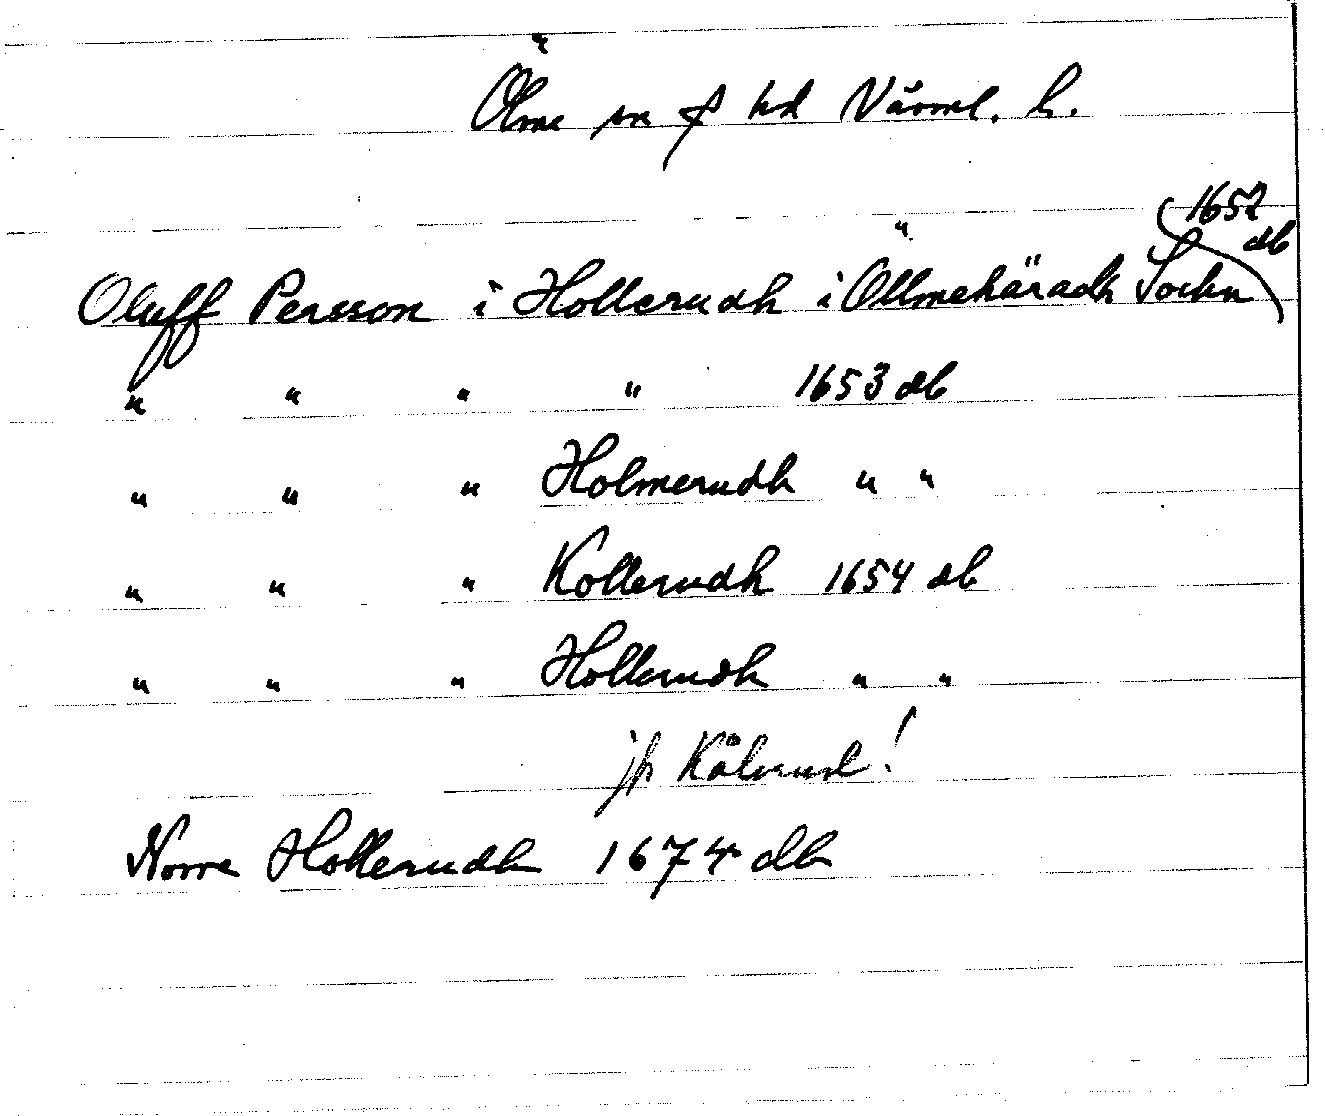 Ölme sn f hd Värml. l.
1652 db
Oluff Persson i Hollerudh i Öllmehäradh Sochn
" " " " 1653 db
" " " Holmerudh " "
" " " Kollerudh 1654 db
" " " Hollerudh " "
jfr Kålerud!
Norre Hollerudh 1674 db